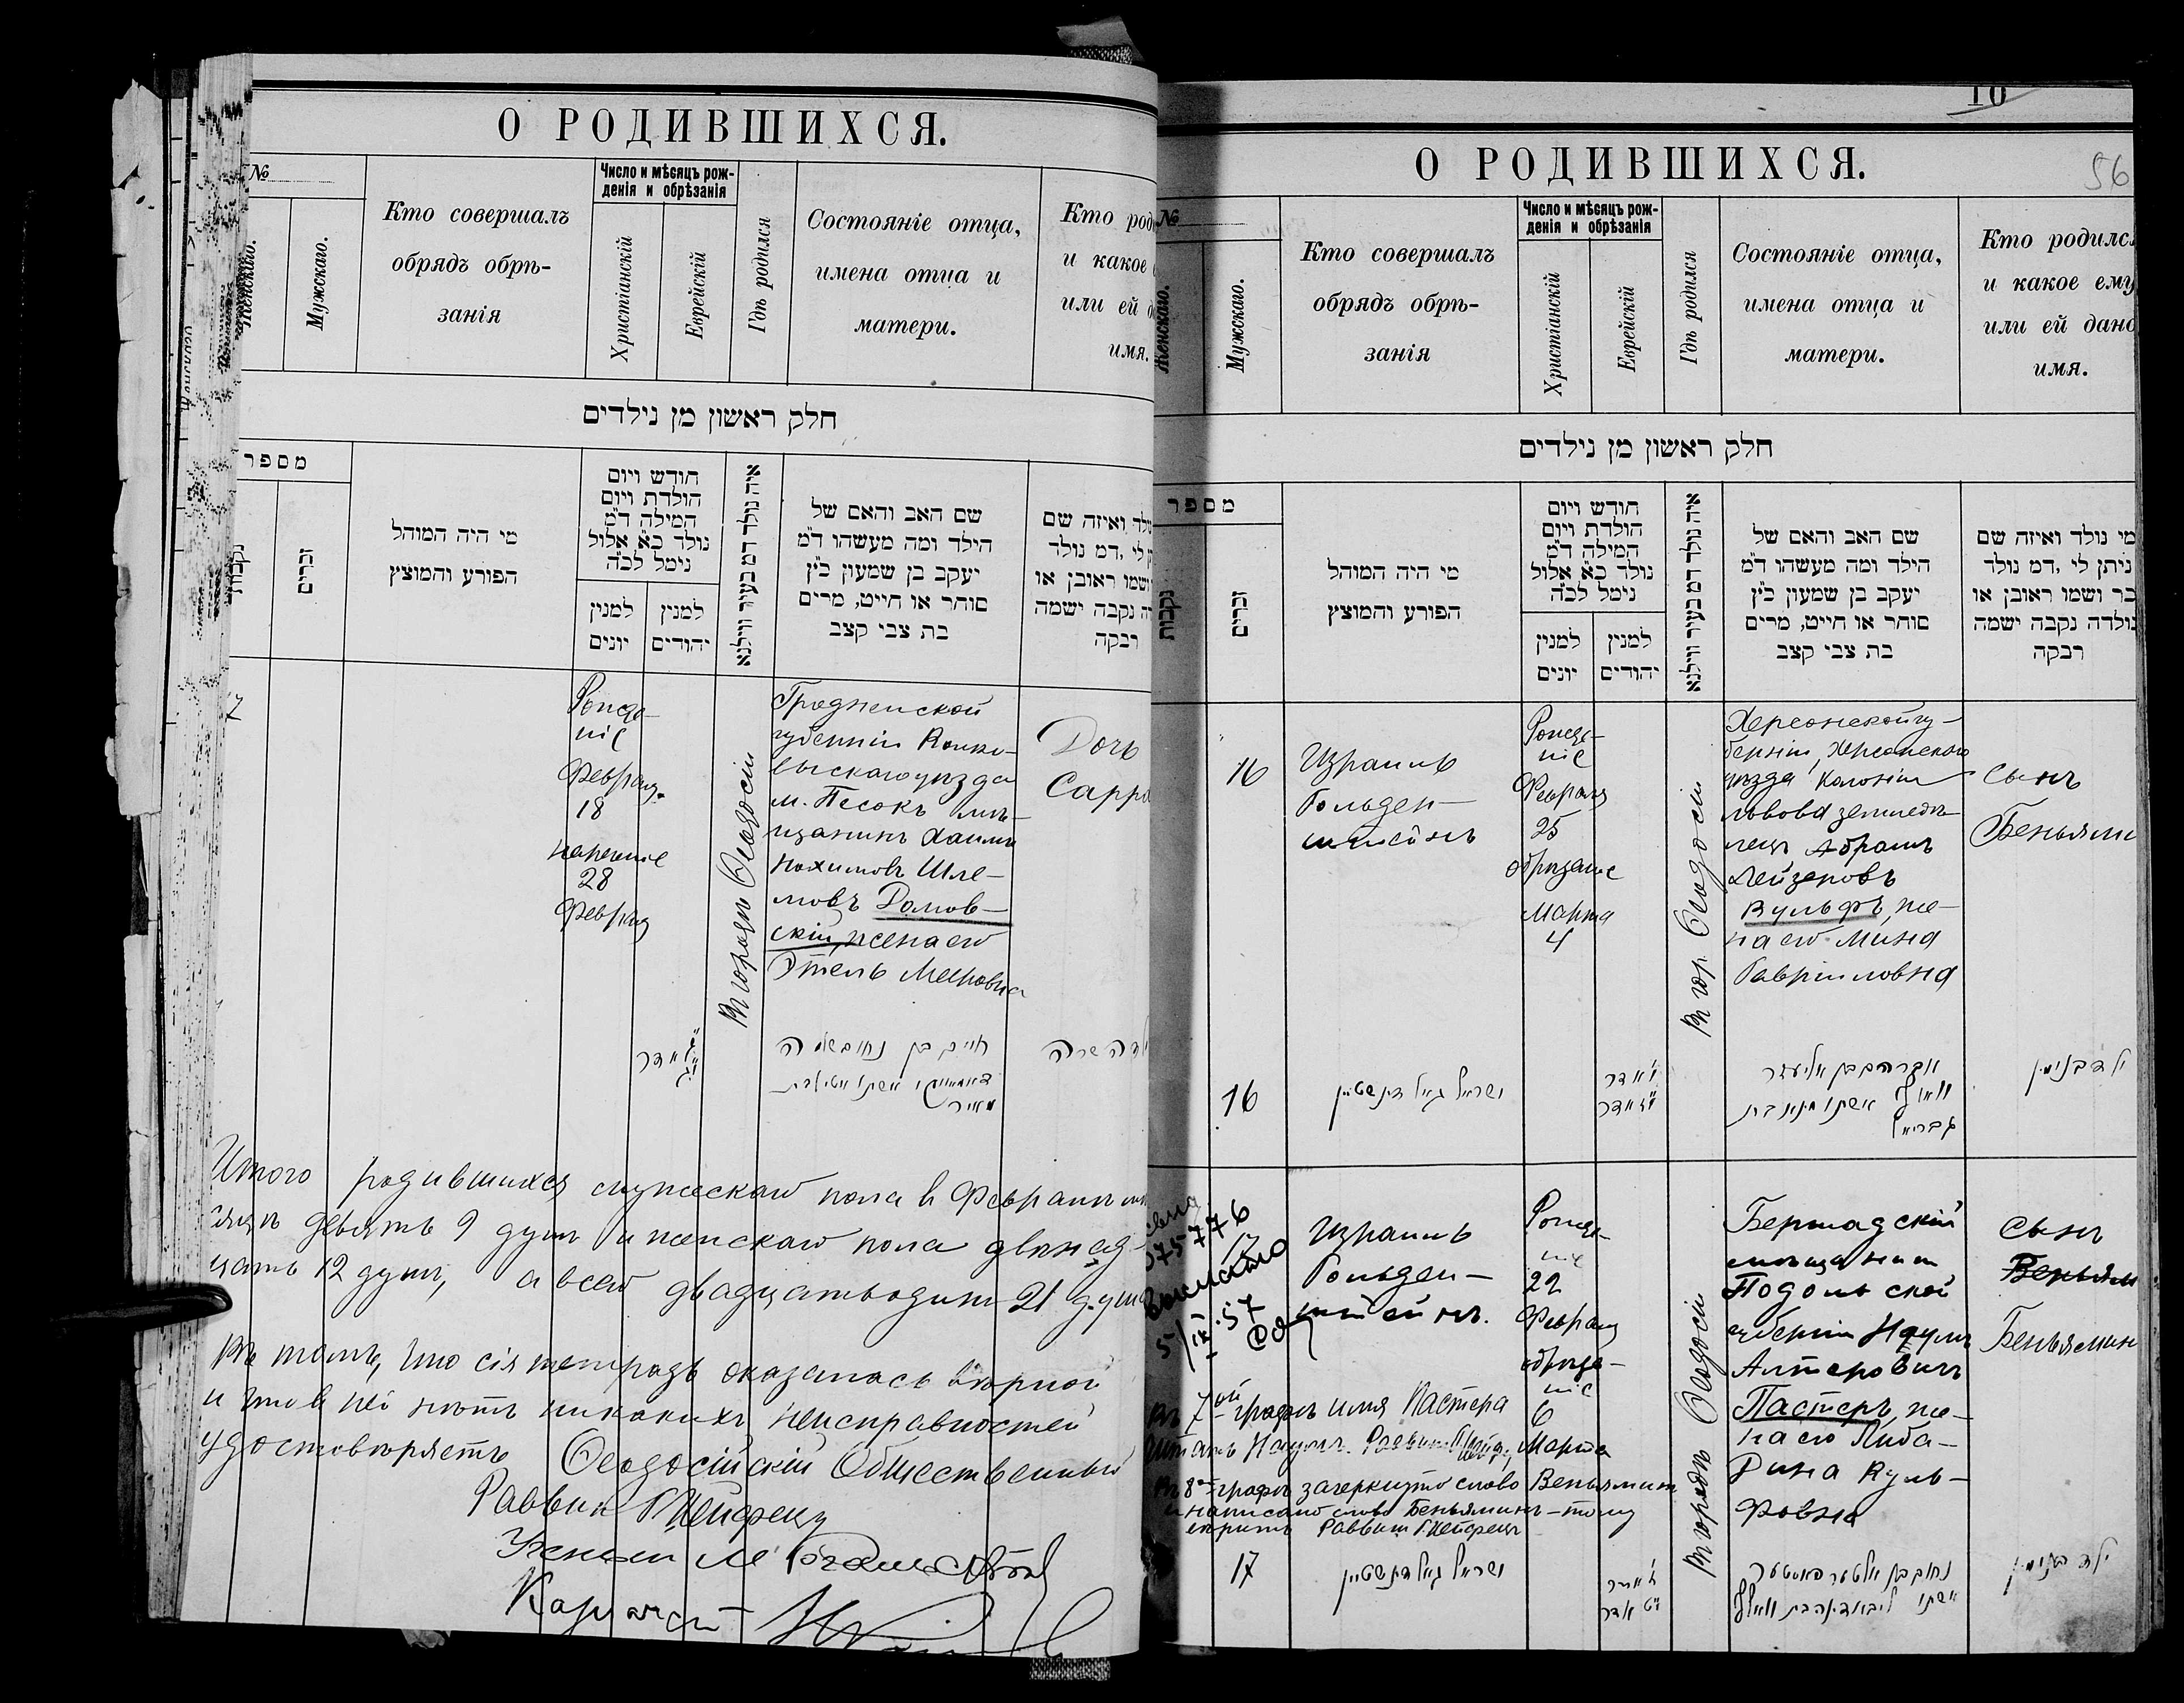 О РОДИВШИХСЯ.
№
Женскаго.
Мужскаго.
Кто совершалъ
обрядъ обрѣ-
занія
Число и мѣсяцъ рож-
денія и обрѣзанія
Христіанскій
Еврейскій
Гдѣ родился
Состояніе отца,
имена отца и
матери.
Кто род
и какое
или ей д
имя.
חלק ראשון מן נילדים
מספר
נקבות
זכרים
מי היה המוהל
הפורע והמוצץ
חודש ויום
הולדת ויום
המילה ד"מ
נולד כא אלול
נימל לכ"ה
למנין
יונים
למנין
יהודים
איה נולד דמ בעיר ווילנא
שם האב והאם של
הילד ומה מעשהו ד"מ
יעקב בן שמעון כ"ץ
סוחר או חייט, מרים
בת צבי קצב
ולד ואיזה שם
לי, דמ נולד
ושמו ראובן או
ה נקבה ישמה
רבקה
7
Рожде-
ніе
Февраля
18
нареченіе
28
Февраля
Въ городѣ Ѳеодосіи
Гродненской
губерніи Волко-
выскаго уѣзда
м. Песокъ мѣ-
щанинъ Хаимъ
Нохимовъ Шле-
мовъ Домов-
скій, жена его
Этель Меировна
Дочь
Сарра
חיים בן נחום
אשתו
מאיר
שרה
Итого родившихся мужескаго пола въ Февралѣ мѣ-
сяцѣ девять 9 душъ и женскаго пола двѣнад-
цать 12 душъ, а всего двадцать одинъ 21 душа
Въ томъ, что сія тетрадь оказалась вѣрной
и что въ ней нѣтъ никакихъ неисправностей
удостовѣряетъ Ѳеодосійскій Общественный
Раввинъ
О РОДИВШИХСЯ.
10
56
№
Женскаго.
Мужскаго.
Кто совершалъ
обрядъ обрѣ-
занія
Число и мѣсяцъ рож-
денія и обрѣзанія
Христіанскій
Еврейскій
Гдѣ родился
Состояніе отца,
имена отца и
матери.
Кто родился
и какое ему
или ей дано
имя.
חלק ראשון מן נילדים
מספר
נקבות
זכרים
מי היה המוהל
הפורע והמוצץ
חודש ויום
הולדת ויום
המילה ד"מ
נולד כא אלול
נימל לכ"ה
למנין
יונים
למנין
יהודים
איה נולד דמ בעיר ווילנא
שם האב והאם של
הילד ומה מעשהו ד"מ
יעקב בן שמעון כ"ץ
סוחר או חייט, מרים
בת צבי קצב
מי נולד ואיזה שם
ניתן לי, דמ נולד
בר ושמו ראובן או
נולדה נקבה ישמה
רבקה
16
Израиль
Гольден-
штейнъ
Рожде-
ніе
Февраля
25
обрѣзаніе
Марта
4
Въ гор Ѳеодосіи
Херсонской гу-
берніи, Херсонскаго
уѣзда колоніи
Львова землед-
лецъ Абрамъ
Лейзеровъ
Вульфъ, же-
на его Мина
Гавриловна
сынъ
Беньями
16
ישראל גאלדינשטיין
אדר
אדר
אברהם בן אליעזר
וואלף אשתו מינא בת
גבריאל
ילד בנימין
57576
17
5/IX-57
Израиль
Гольден-
штейнъ.
Рожде-
ніе
22
Февраля
обрѣза-
ніе
6
Марта
Въ городѣ Ѳеодосіи
Бершадскій
мѣщанинъ
Подольской
губерніи Наумъ
Алтеровичъ
Пастеръ, же-
на его Либа-
Дина Вуль-
фовна
сынъ
Веньям
Беньямин
Въ 7ой графѣ имя Пастера
читать Наумъ. Раввинъ
Въ 8ой графѣ зачеркнуто слово Веньяминъ
и написано слово Беньяминъ – тому
вѣрить Раввинъ
17
ישראל גאלדינשטיין
אדר
י"ט אדר
נחום בן אלטער פאסטער
אשתו ליבא דינה בת וואלף
ילד בנימין